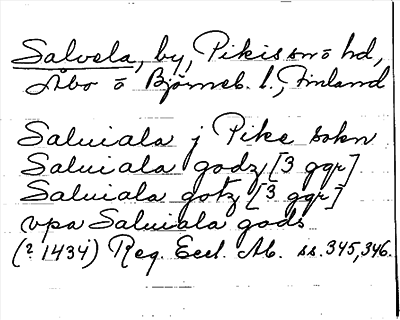 Salvela, by, Pikis snö hd,
Åbo o Björneb. l., Finland
Saluiala j Pike sokn
Saluiala godz [3 ggr]
Saluiala gotz [3 ggr]
vpa Saluiala gods
(? 1434) Reg. Eccl. Ab. ss. 345, 346.